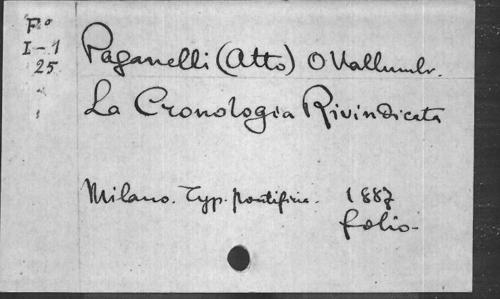 Fº
I-1
25
Paganelli (Atto) O Vallumbr.
La Cronologia Rivindicata
Milano. Typ. pontificia. 1887
folio-